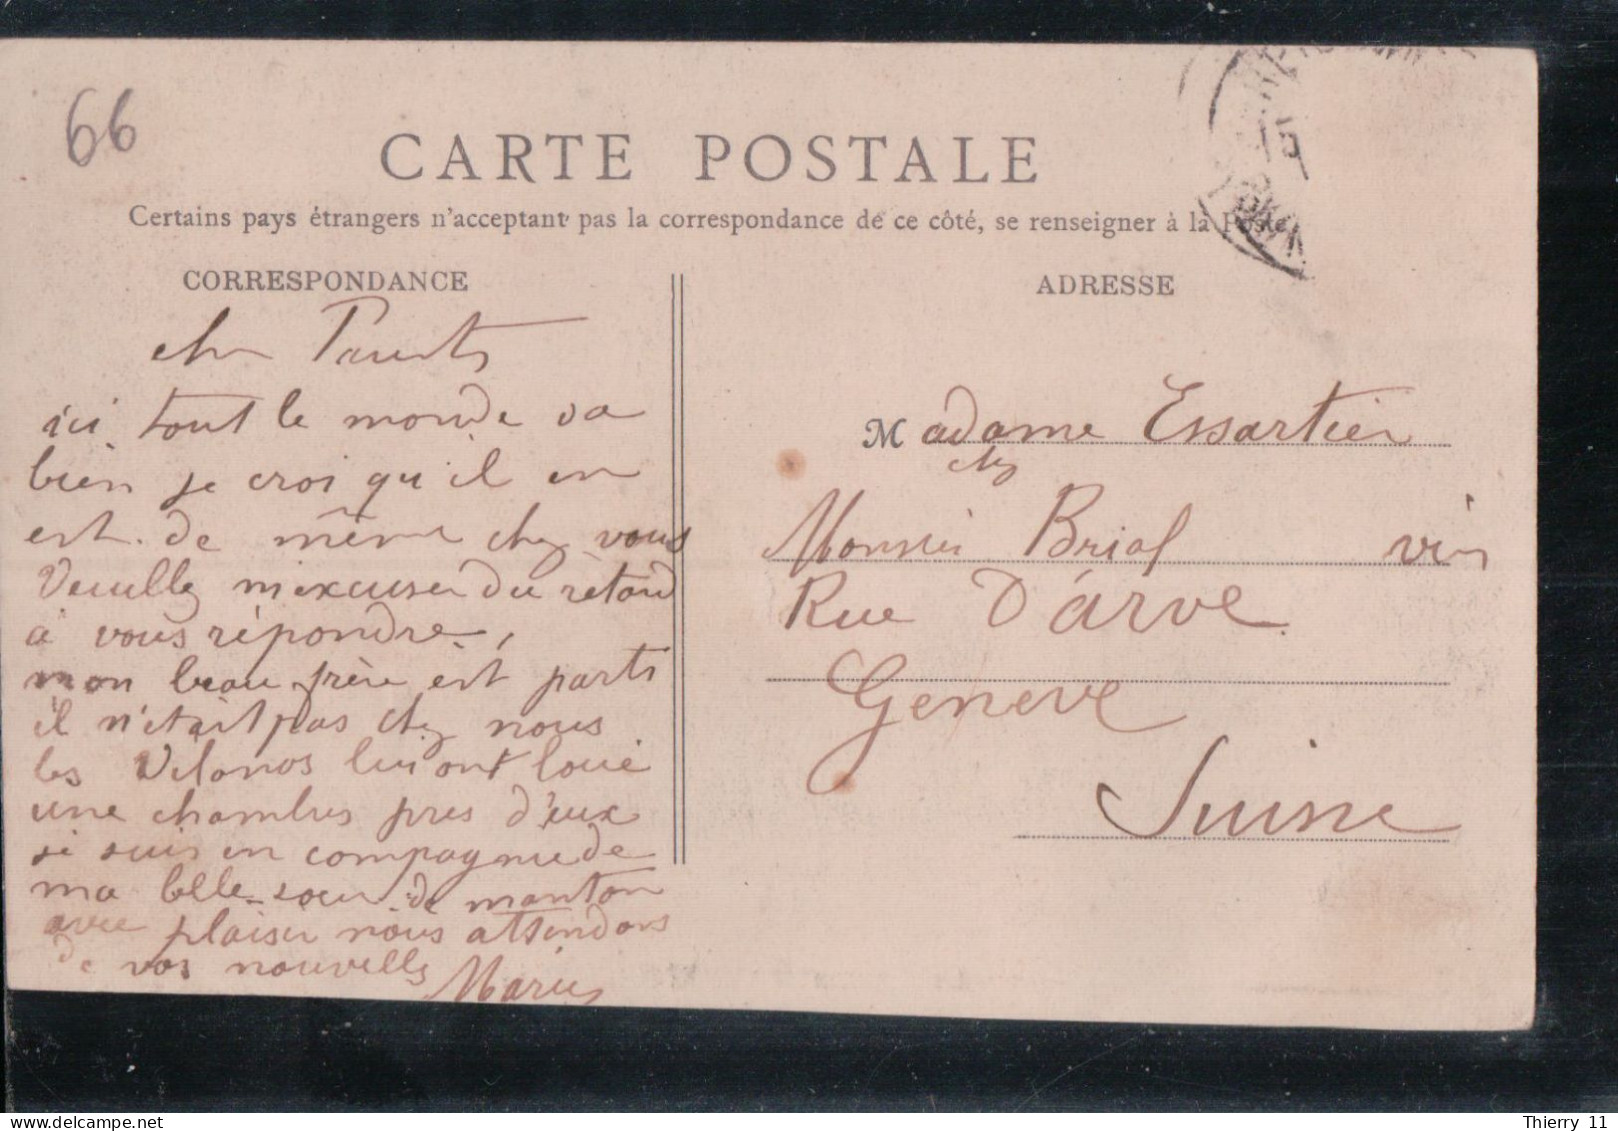 66
CARTE POSTALE
Certains pays étrangers n'acceptant pas la correspondance de ce côté, se renseigner à la Poste
CORRESPONDANCE
cher Parents
ici tout le monde va
bien je croi qu'il en
est de même chez vous
Veuillez m'excuser du retard
à vous répondre,
mon beau frère est parti
il n'était pas chez nous
les Vilanos lui ont loué
une chambre pres d'eux
je suis en compagnie de
ma belle-soeur de manton
avec plaisir nous attendons
de vos nouvelles
Marius
ADRESSE
Madame Essartier
chez
Monsieur Brial vin
Rue D'arve
Geneve
Suisse
Thierry 11